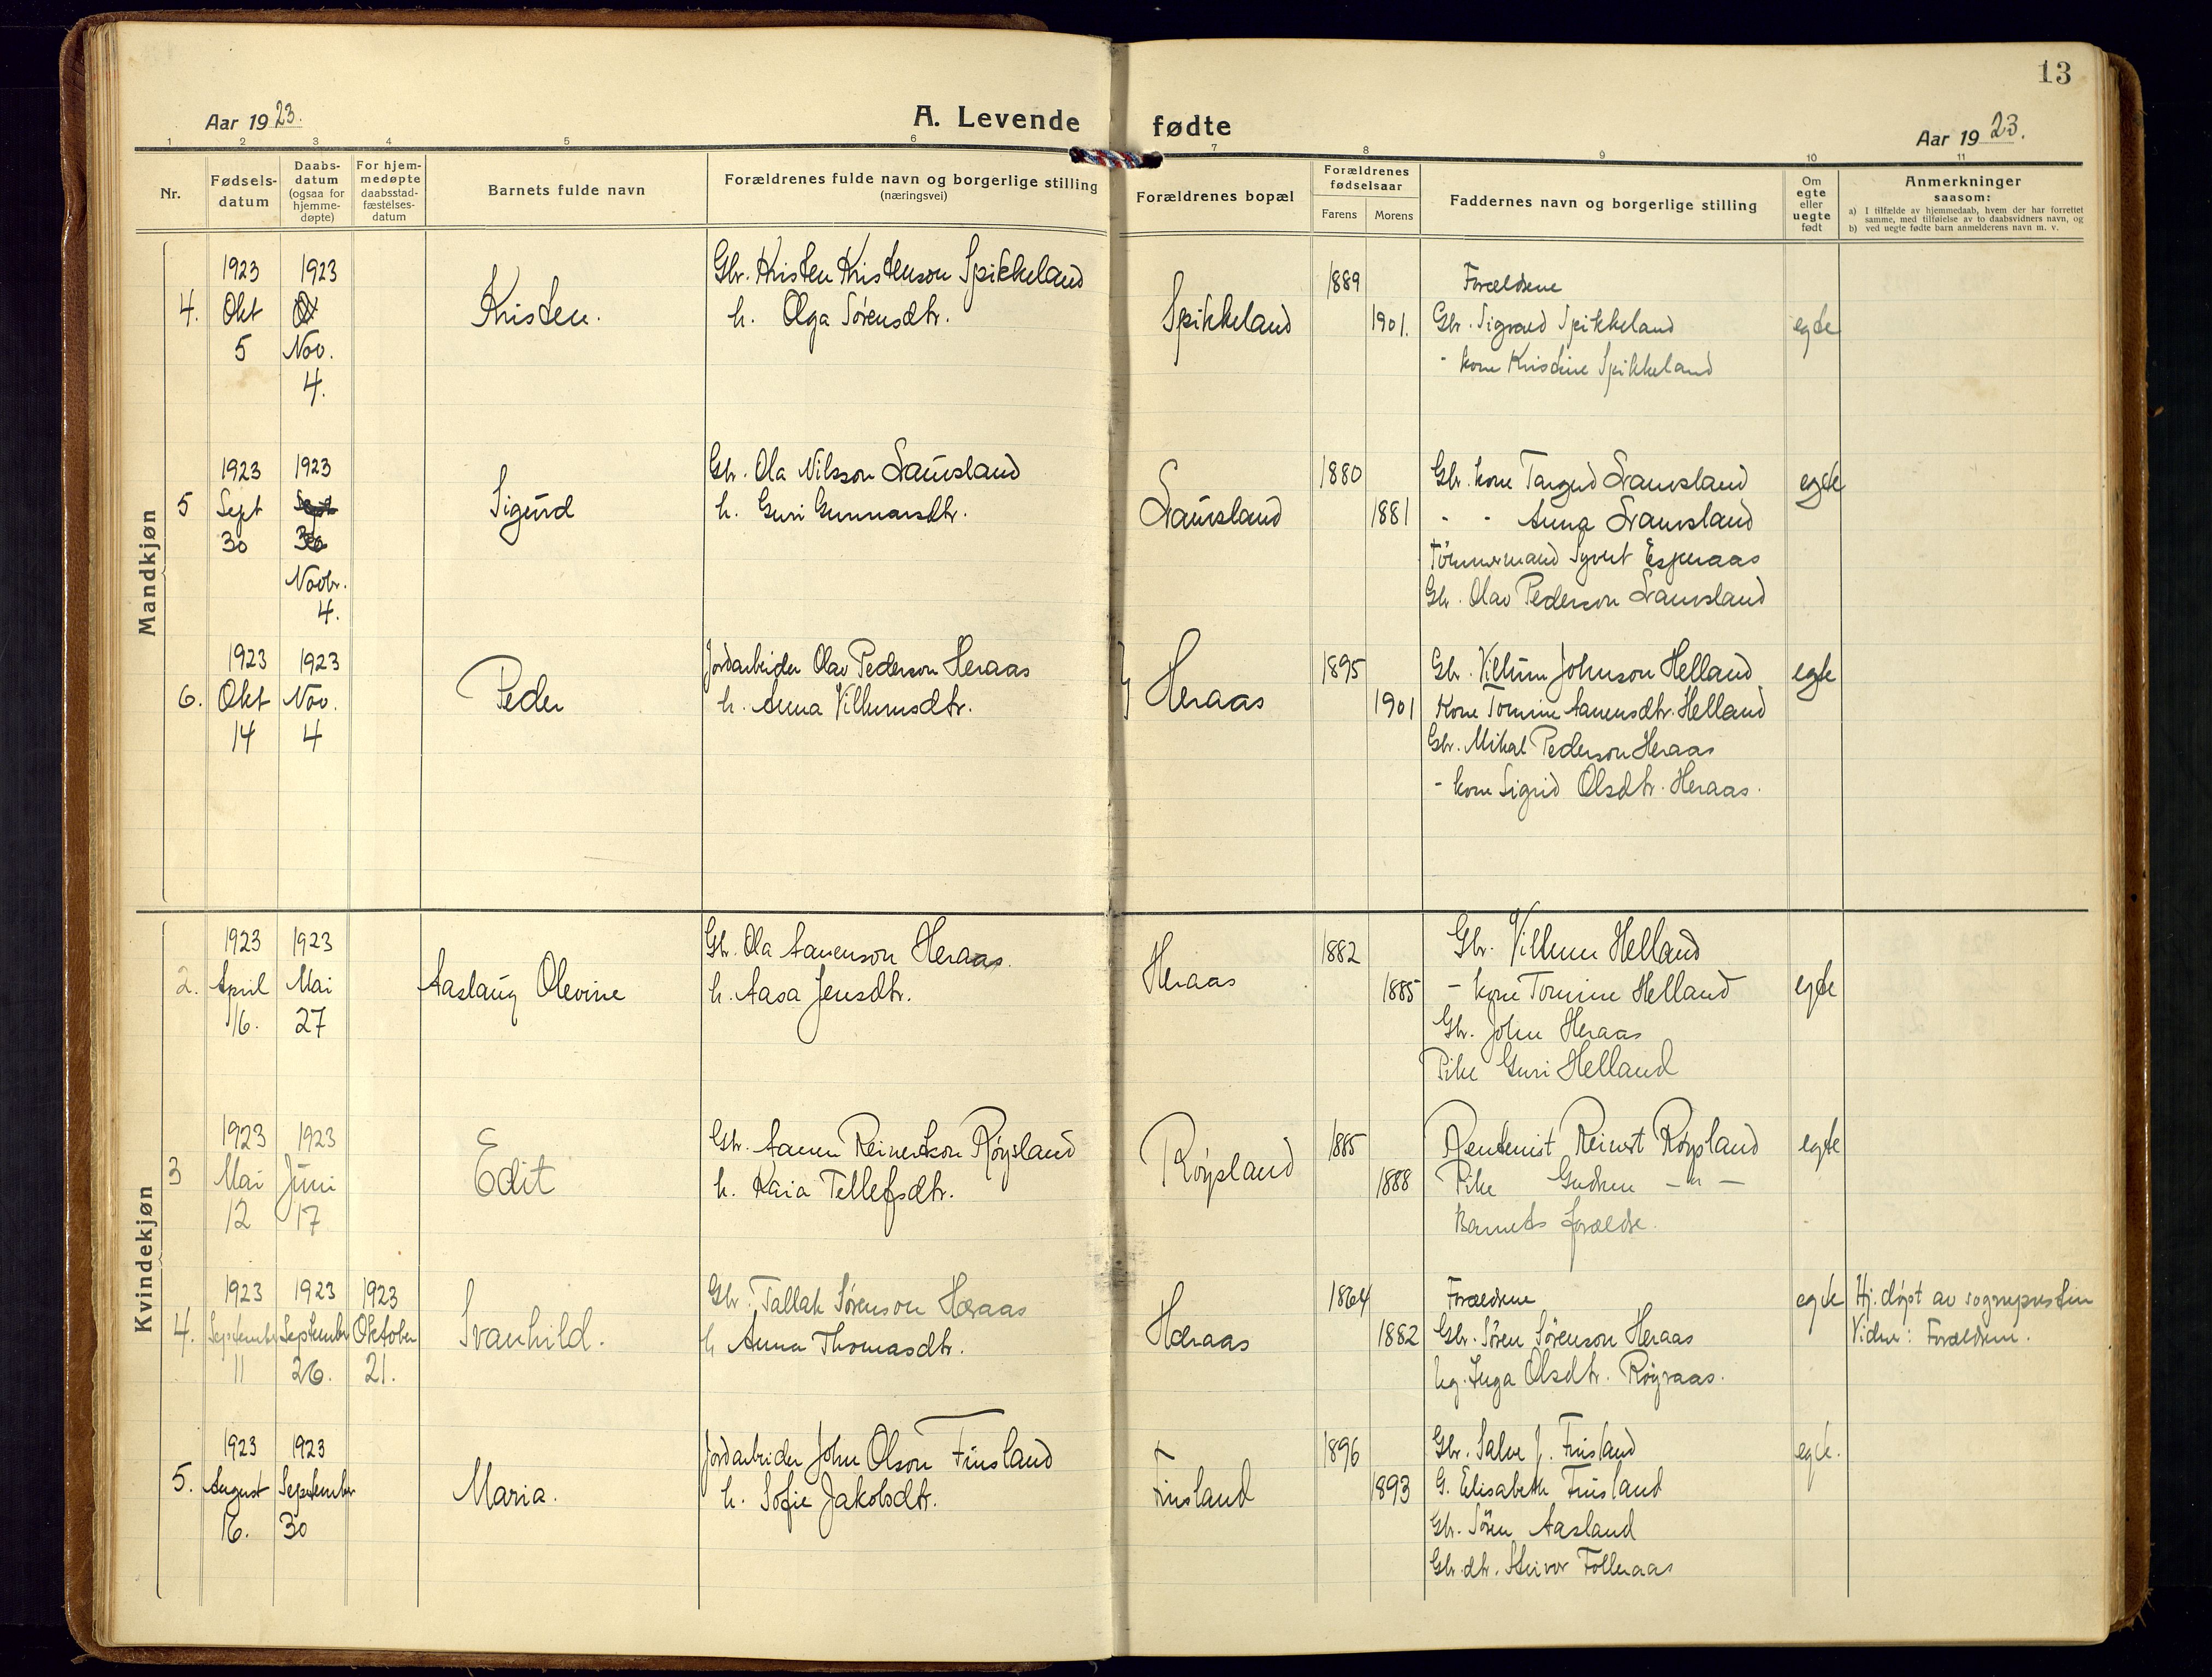 13
Aar 1923.
A. Levende fødte
Aar 1923.
1 2 3 4 5 6 7 8 9 10 11
Nr.
Fødsels-
datum
Daabs-
datum
(ogsaa for
hjemme-
døpte)
For hjem-
medøpte
daabsstad-
fæstelses-
datum
Barnets fulde navn
Forældrenes fulde navn og borgerlige stilling
(næringsvei)
Forældrenes bopæl
Forældrenes
fødselsaar
Farens Morens
Faddernes navn og borgerlige stilling
Om
egte
eller
uegte
født
Anmerkninger
saasom:
a) I tilfælde av hjemmedaab, hvem der har forrettet
samme, med tilføielse av to daabsvidners navn, og
b) ved uegte fødte barn anmelderens navn m. v.
Mandkjøn
4.
1923
Okt
5
1923
Nov.
4.
Kristen.
Gbr. Kristen Kristenson Spikkeland
h. Olga Sørensdtr.
Spikkeland
1889
1901.
Forældrene
Gbr. Sigvald Spikkeland
- kone Kristine Spikkeland
egte
5
1923
Sept
30
1923
Sept
30
Novbr.
4.
Sigurd
Gbr. Ola Nilsson Lauvsland
h. Guri Gunnarsdtr.
Lauvsland
1880
1881
Gbr. kone Targud Lauvsland
- - Anna Lauvsland
Tömmermand Syvert Esperaas
Gbr. Olav Pederson Lauvsland
egte
6.
1923
Okt
14
1923
Nov.
4
Peder
Jordarbeider Olav Pederson Heraas
h. Anna Vilhumsdtr.
Heraas
1895
1901
Gbr. Vilhum Johnson Helland
Kone Tomine Aanensdtr. Helland
Gbr. Mikal Pederson Heraas
- kone Sigrid Olsdtr. Heraas.
egte
Kvindekjøn
2.
1923
April
16.
1923
Mai
27
Aaslaug Olevine
Gbr. Ola Aanenson Heraas.
h. Aasa Jensdtr.
Heraas
1882
1885
Gbr. Vilhum Helland
- kone Tomine Helland
Gbr. John Heraas
Pike Guri Helland
egte
3
1923
Mai
12
1923
Juni
17
Edit
Gbr. Aanen Reinertson Røysland
h. Kaia Tellefsdtr.
Røysland
1885
1888
Rentenist Reinert Røysland
Pike Gudrun - " -
Barnets forældre.
egte
4.
1923
September
11
1923
September
26.
1923
Oktober
21.
Svanhild.
Gbr. Tallak Sørenson Heraas
h Anna Thomasdtr.
Heraas
1864
1882
Forældrene
Gbr. Sören Sörenson Heraas
Inga Olsdtr. Röyraas.
egte
Hj. døpt av sognepresten
Vidner: Forældrene.
5.
1923
August
16.
1923
September
30
Maria.
Jordarbeider John Olson Finsland
h. Sofie Jakobsdtr.
Finsland
1896
1893
Gbr. Salve J. Finsland
G. Elisabeth Finsland
Gbr. Sören Aasland
Gbr. dtr. Steivor Folleraas
egte.